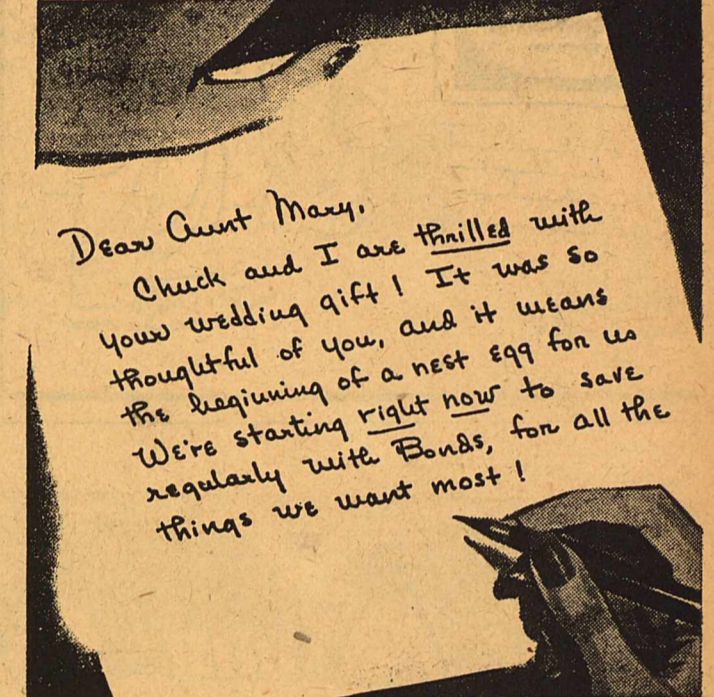 Dear Aunt Mary,
Chuck and I are thrilled with
your wedding gift! It was so
thoughtful of you, and it means
the beginning of a nest egg for us
We're starting right now to save
regularly with Bonds, for all the
things we want most!